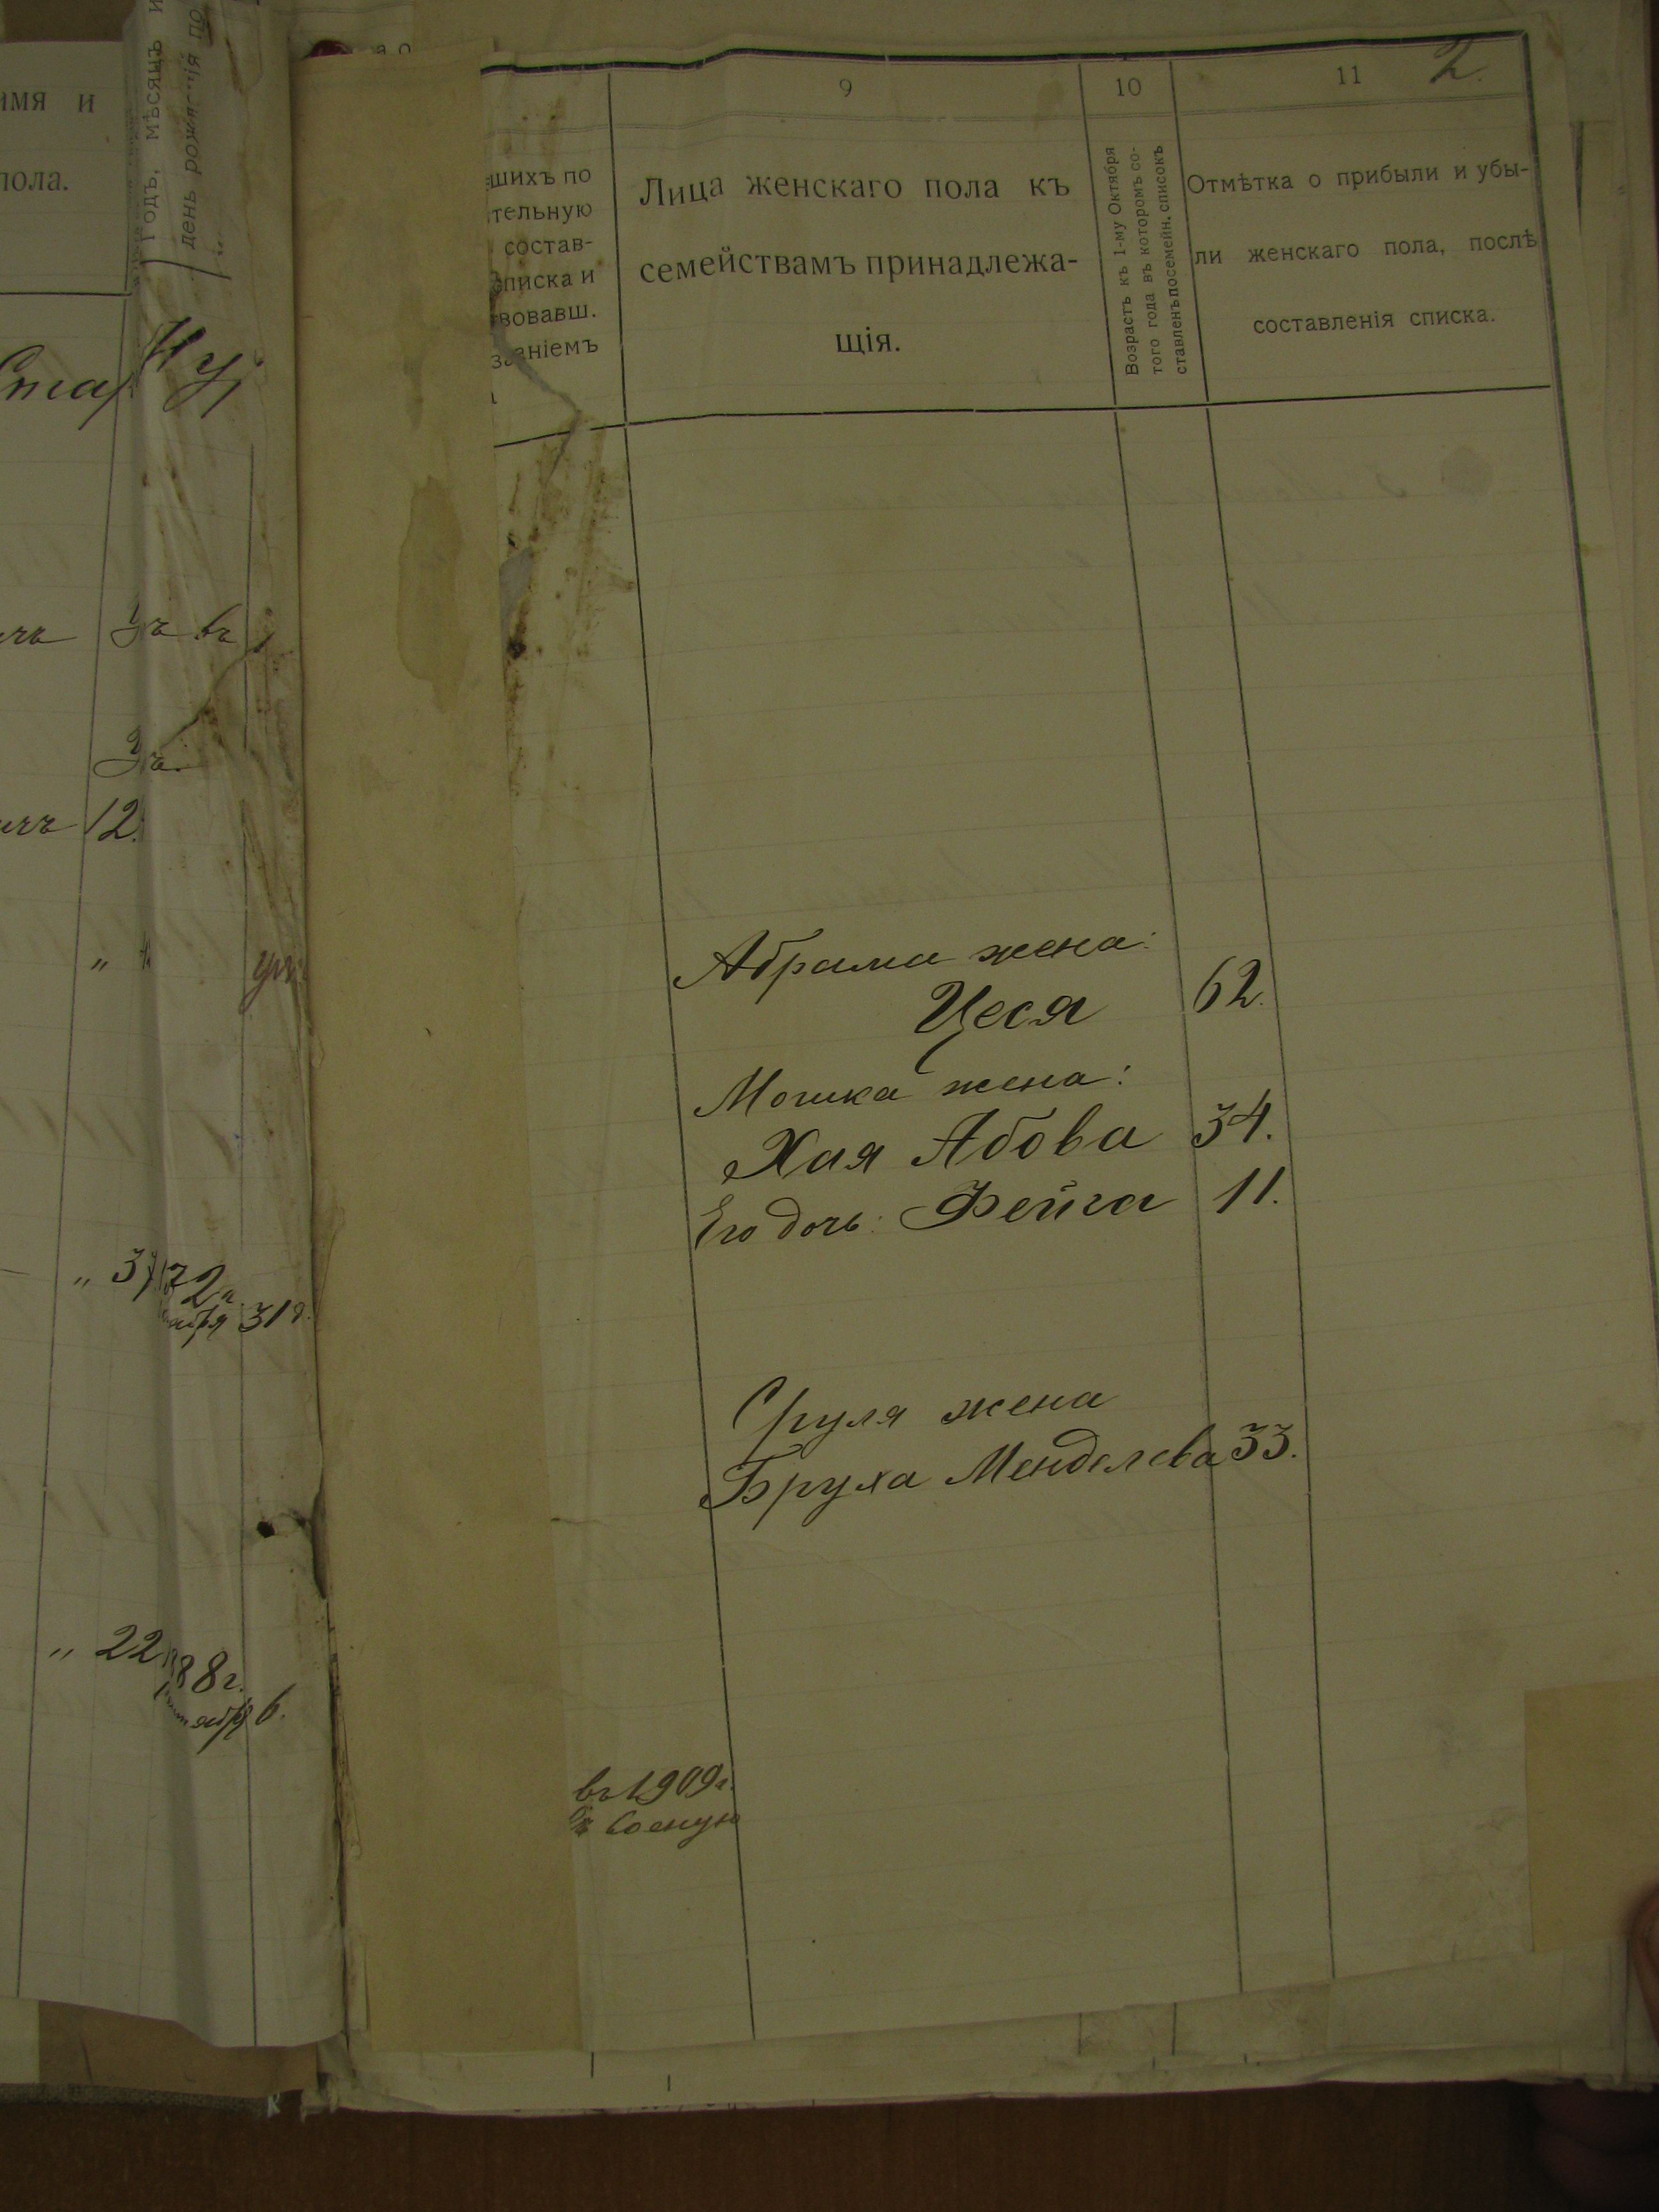 имя и
пола.
Годъ, мѣсяцъ и
день рожденія по
2.
9
10
11
шихъ по
тельную
состав-
списка и
вовавш.
заніемъ
Лица женскаго пола къ
семействамъ принадлежа-
щія.
Возрастъ къ 1-му Октября
того года въ которомъ со-
ставленъ посемейн. списокъ
Отмѣтка о прибыли и убы-
ли женскаго пола, послѣ
составленія списка.
12.
Абрама жена:
Цеся 62.
Мошка жена:
Хая Абова 34.
Его дочь: Фейга 11.
31
Сруля жена
Бруха Менделева 33.
" 22 88г.
6.
въ 1909г.